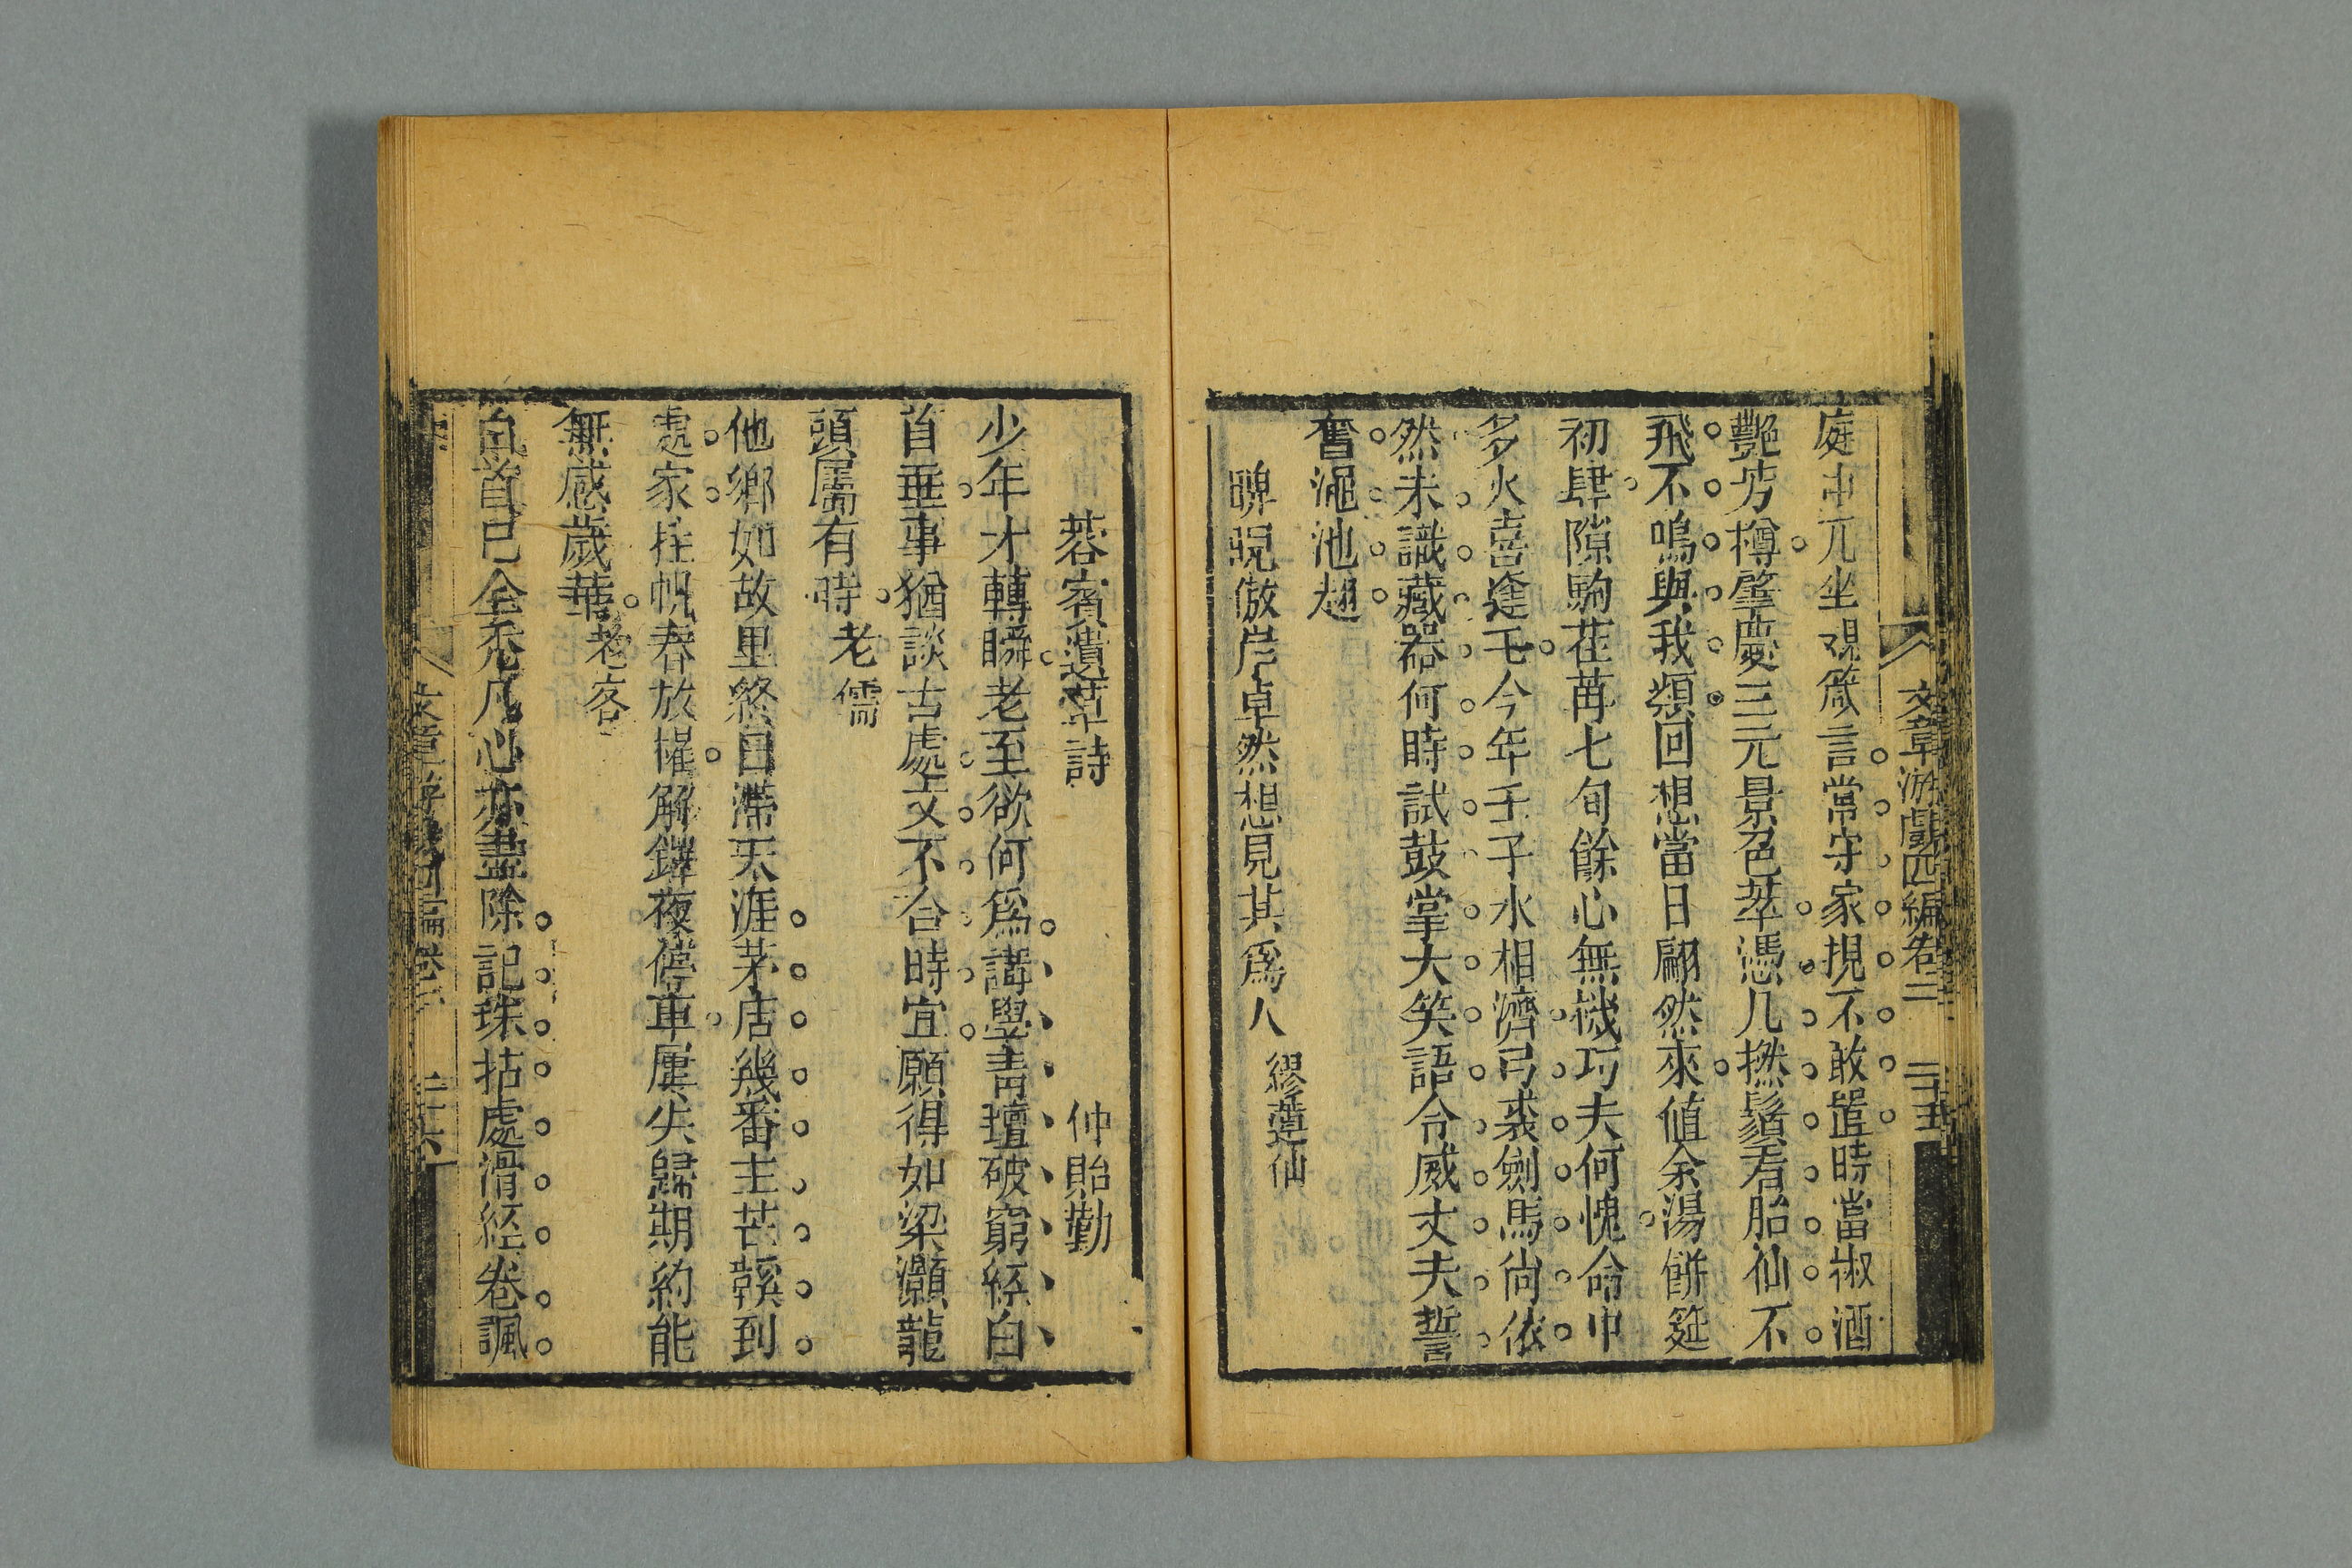 文章游戲四編卷二 二十五
庭中兀坐視箴言常守家規不敢踰時當椒酒
艷芳樽肇慶三元景色萃憑几撚鬚看胎仙不
飛不鳴與我頻回想當日翩然來值余湯餅筵
初肆隙駒荏苒七旬餘心無機巧夫何愧命中
多火喜逢壬今年壬子水相濟弓裘劍馬尙依
然未識藏器何時試鼓掌大笑語令威丈夫誓
奮澠池翅
睥睨傲岸卓然想見其爲人 繆蓮仙
蓉賓遺草詩 仲貽勤
少年才轉瞬老至欲何爲講學靑壇破窮經白
首垂事猶談古處文不合時宜願得如梁灝龍
頭屬有時 老儒
他鄉如故里終日滯天涯茅店幾番主芒鞵到
處家挂帆春放櫂解鐸夜停車屢失歸期約能
無感歲華 老客
白首已全禿凡心亦盡除記珠拈處滑經卷諷
文章游戲四編卷二 二十六